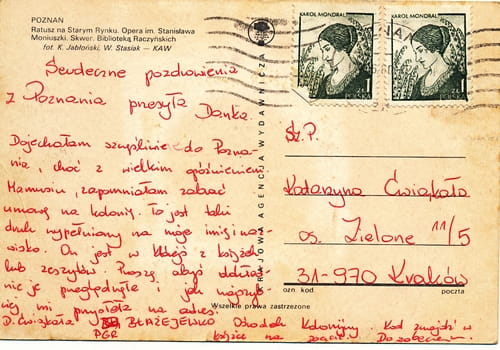 POZNAŃ
Ratusz na Starym Rynku. Opera im. Stanisława
Moniuszki. Skwer. Biblioteka Raczyńskich
fot. K. Jabłoński, W. Stasiak — KAW
KAROL MONDRAL
1
KAROL MONDRAL
1
Serdeczne pozdrowienia
z Poznania przesyła Danka.
Dojechałam szczęśliwie do Pozna-
nia, choć z wielkim opóźnieniem.
Mamusiu, zapomniałam zabrać
umowę na kolonię. To jest taki
druk wypełniony na moje imię i naz-
wisko. On jest w którejś z książek
lub zeszytów. Proszę abyś dokład-
nie je przeglądnęła i jak najszyb-
ciej mi przysłała na adres:
D. Ćwiąkała BŁAŻEJEWKO Ośrodek Kolonijny. Kod znajdź w
PGR książce na Do zobaczenia.
KRAJOWA AGENCJA WYDAWNICZA
Sz. P.
Katarzyna Ćwiąkała
os. Zielone 11/5
31-970 Kraków
ozn. kod poczta
Wszelkie prawa zastrzeżone